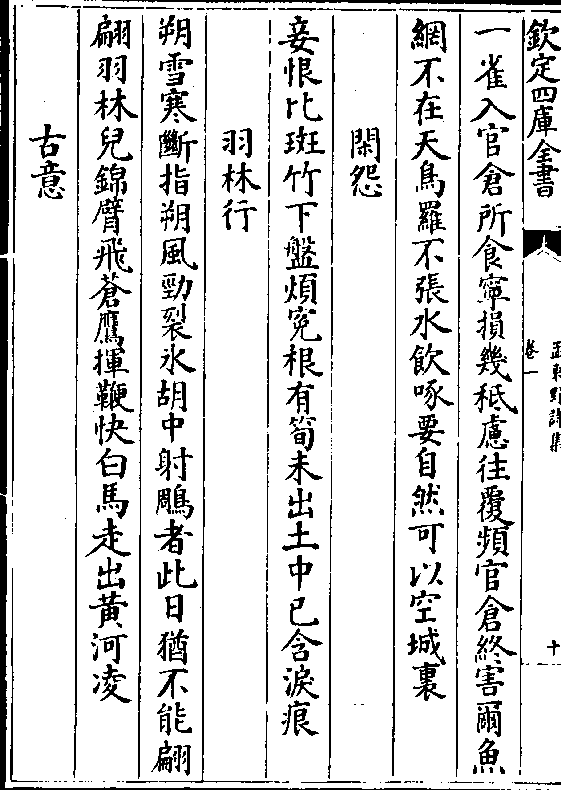 欽定四庫全書
孟東野詩集
卷一
十
一雀入官倉所食寧損幾秪慮往覆頻官倉終害爾魚
網不在天鳥羅不張水飲啄要自然可以空城裏
閑怨
妾恨比斑竹下盤煩寃根有筍未出土中已含淚痕
羽林行
朔雪寒斷指朔風勁裂氷胡中射鵰者此日猶不能翩
翩羽林兒錦臂飛蒼鷹揮鞭快白馬走出黃河凌
古意